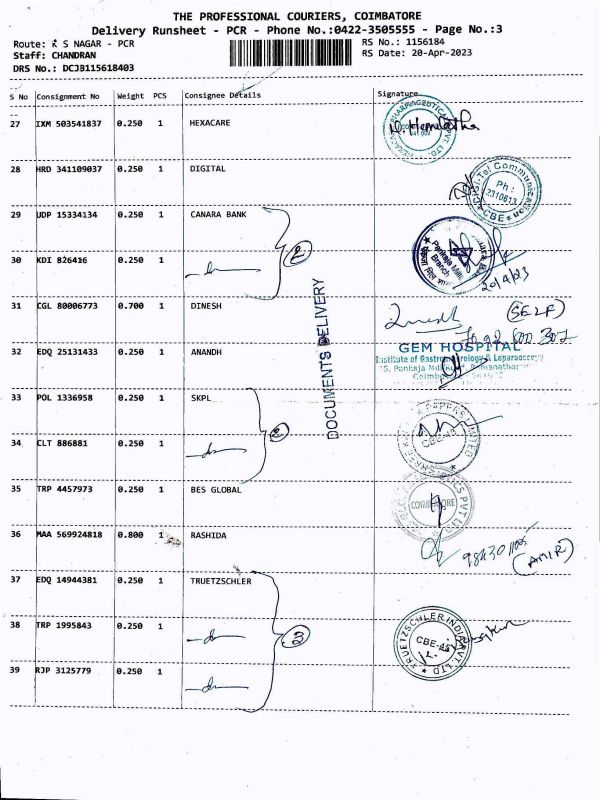 THE PROFESSIONAL COURIERS, COIMBATORE
Delivery Runsheet - PCR - Phone No.:0422-3505555 - Page No.:3
Route: R S NAGAR - PCR RS No.: 1156184
Staff: CHANDRAN RS Date: 20-Apr-2023
DRS No.: DCJB115618403
S No Consignment No Weight PCS Consignee Details Signature
27 IXM 503541837 0.250 1 HEXACARE
28 HRD 341109037 0.250 1 DIGITAL
29 UDP 15334134 0.250 1 CANARA BANK
30 KDI 826416 0.250 1 -do- 2 20/4/23
31 CGL 80006773 0.700 1 DINESH (SELF)
DOCUMENTS DELIVERY
GEM HOSPITAL
32 EDQ 25131433 0.250 1 ANANDH
Institute of Gastroenterology & Laparoscopy
33 POL 1336958 0.250 1 SKPL
34 CLT 886881 0.250 1 -do- 2
35 TRP 4457973 0.250 1 BES GLOBAL COIMBATORE
36 MAA 569924818 0.800 1 RASHIDA (AMIR)
37 EDQ 14944381 0.250 1 TRUETZSCHLER
38 TRP 1995843 0.250 1 -do- 3 TRUETZSCHLER INDIA PVT. LTD CBE-45
39 RJP 3125779 0.250 1 -do-